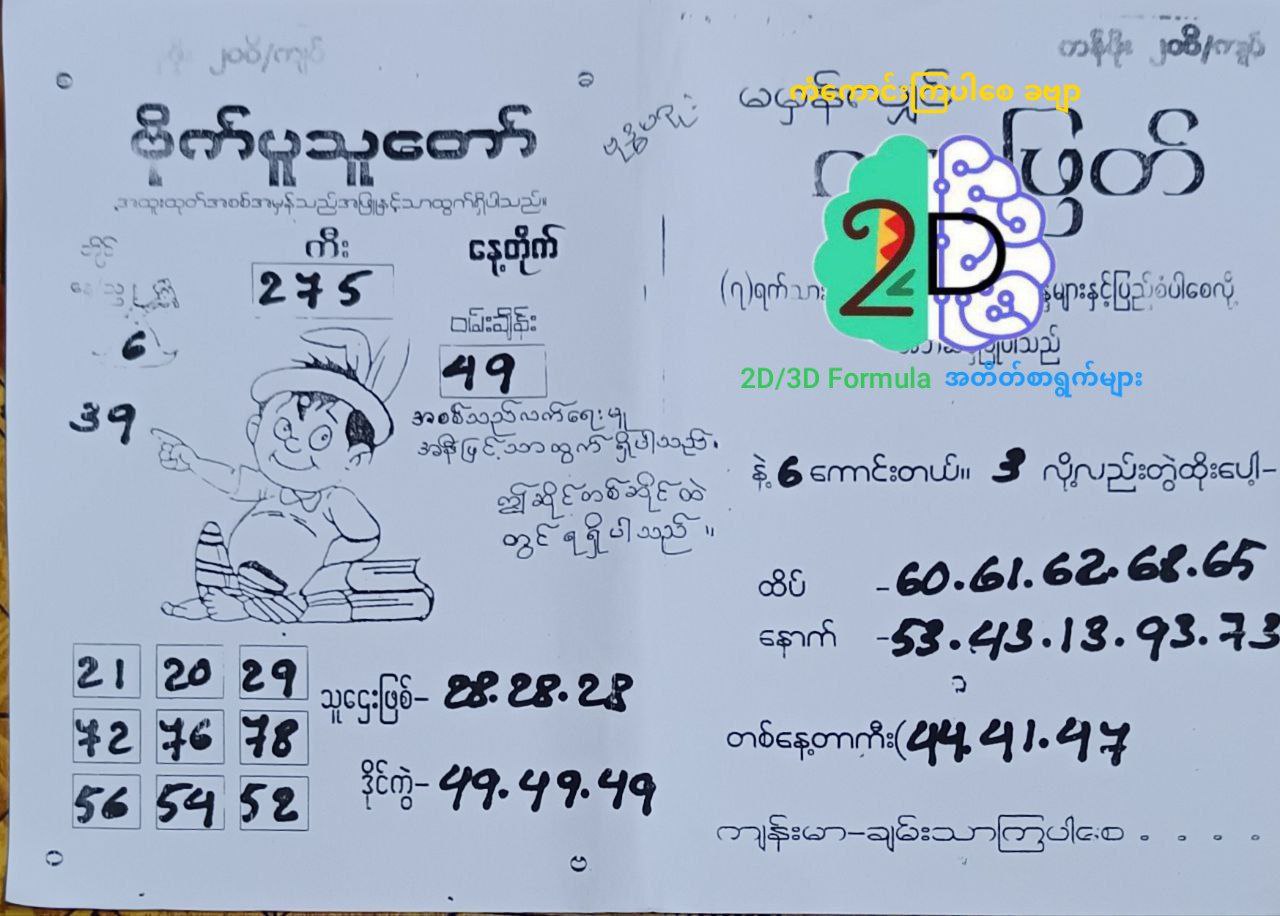 ၂၀၀ိ/ကျပ်
ဗိုက်ပူသူတော်
အထူးထုတ်အစစ်အမှန်သည်အဖြူနှင့်သာထွက်ရှိပါသည်။
ကီး
275
နေ့တိုက်
6
39
ဝမ်းချိန်း
49
အစစ်သည်လက်ရေးမူ
အနီးဖြင့်သာထွက်ရှိပါသည်။
ဤဆိုင်တစ်ဆိုင်ထဲ
တွင် ရရှိပါသည် ။
21 20 29
72 76 78
56 54 52
သူဌေးဖြစ်- 28.28.28
ဒိုင်ကွဲ- 49.49.49
တန်ဖိုး ၂၀၀ိ/ကျပ်
မမှန်း
ကံကောင်းကြပါစေ ခဗျာ
ဖြတ်
2D
(၇)ရက်သား
များနှင့်ပြည့်စုံပါစေလို့
2D/3D Formula အတိတ်စာရွက်များ
နဲ့ 6 ကောင်းတယ်။ 3 လို့လည်းတွဲထိုးပေါ့-
ထိပ် -60.61.62.68.65
နောက် -53.43.13.93.73
တစ်နေ့တာကီး(44.41.47
ကျန်းမာ-ချမ်းသာကြပါစေ . . . .